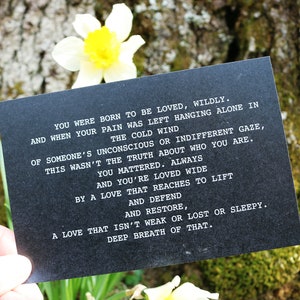 YOU WERE BORN TO BE LOVED, WILDLY.
AND WHEN YOUR PAIN WAS LEFT HANGING ALONE IN
THE COLD WIND
OF SOMEONE'S UNCONSCIOUS OR INDIFFERENT GAZE,
THIS WASN'T THE TRUTH ABOUT WHO YOU ARE.
YOU MATTERED. ALWAYS
AND YOU'RE LOVED WIDE
BY A LOVE THAT REACHES TO LIFT
AND DEFEND
AND RESTORE,
A LOVE THAT ISN'T WEAK OR LOST OR SLEEPY.
DEEP BREATH OF THAT.